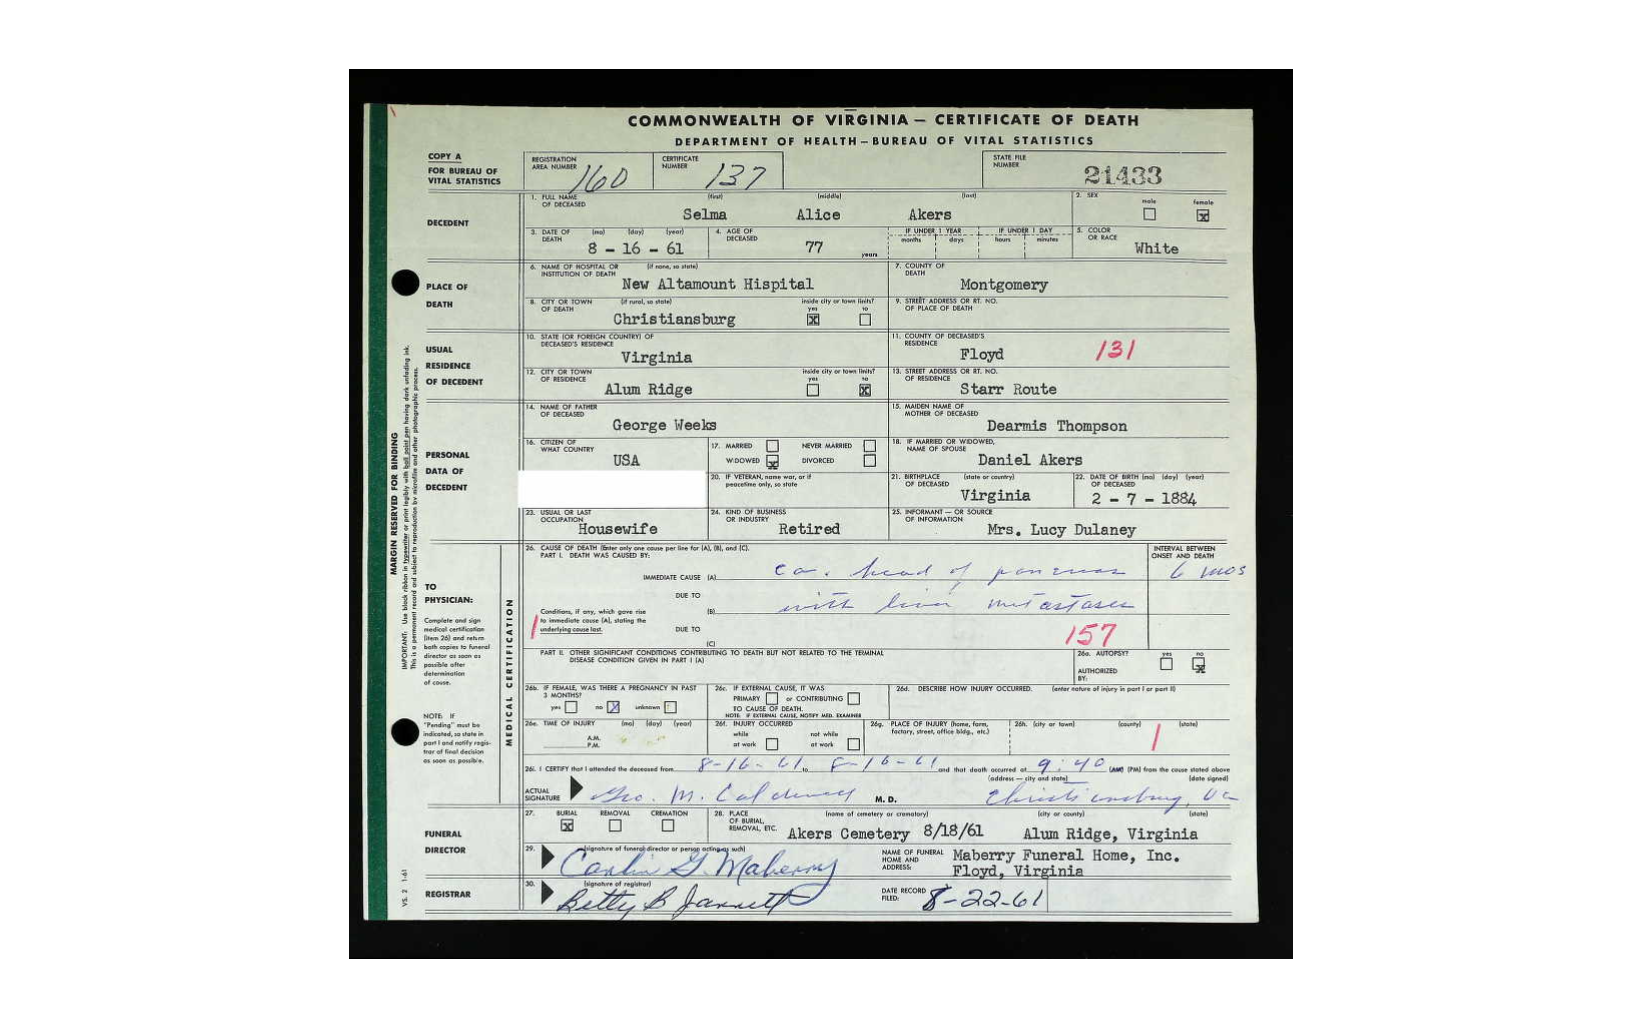 COMMONWEALTH OF VIRGINIA — CERTIFICATE OF DEATH
DEPARTMENT OF HEALTH — BUREAU OF VITAL STATISTICS
COPY A
FOR BUREAU OF
VITAL STATISTICS
REGISTRATION
AREA NUMBER 160
CERTIFICATE
NUMBER 137
STATE FILE
NUMBER 21433
DECEDENT
1. FULL NAME OF DECEASED (first) (middle) (last)
Selma Alice Akers
2. SEX male female
3. DATE OF DEATH (mo) (day) (year)
8 - 16 - 61
4. AGE OF DECEASED
77 years
IF UNDER 1 YEAR IF UNDER 1 DAY
months days hours minutes
5. COLOR OR RACE
White
PLACE OF
DEATH
6. NAME OF HOSPITAL OR INSTITUTION OF DEATH (if none, so state)
New Altamount Hispital
7. COUNTY OF DEATH
Montgomery
8. CITY OR TOWN OF DEATH (if rural, so state)
Christiansburg
inside city or town limits?
yes no
9. STREET ADDRESS OR RT. NO. OF PLACE OF DEATH
USUAL
RESIDENCE
OF DECEDENT
10. STATE (OR FOREIGN COUNTRY) OF DECEASED'S RESIDENCE
Virginia
11. COUNTY OF DECEASED'S RESIDENCE
Floyd 131
12. CITY OR TOWN OF RESIDENCE
Alum Ridge
inside city or town limits?
yes no
13. STREET ADDRESS OR RT. NO. OF RESIDENCE
Starr Route
PERSONAL
DATA OF
DECEDENT
14. NAME OF FATHER OF DECEASED
George Weeks
15. MAIDEN NAME OF MOTHER OF DECEASED
Dearmis Thompson
16. CITIZEN OF WHAT COUNTRY
USA
17. MARRIED NEVER MARRIED
WIDOWED DIVORCED
18. IF MARRIED OR WIDOWED, NAME OF SPOUSE
Daniel Akers
20. IF VETERAN, name war, or if peacetime only, so state
21. BIRTHPLACE OF DECEASED (state or country)
Virginia
22. DATE OF BIRTH OF DECEASED (mo) (day) (year)
2 - 7 - 1884
23. USUAL OR LAST OCCUPATION
Housewife
24. KIND OF BUSINESS OR INDUSTRY
Retired
25. INFORMANT — OR SOURCE OF INFORMATION
Mrs. Lucy Dulaney
MARGIN RESERVED FOR BINDING
IMPORTANT: Use black ribbon in typewriter or print legibly with ball point pen having dark unfading ink.
This is a permanent record and subject to reproduction by microfilm and other photographic process.
TO
PHYSICIAN:
Complete and sign
medical certification
(item 26) and return
both copies to funeral
director as soon as
possible after
determination
of cause.
NOTE: IF
"Pending" must be
indicated, so state in
part I and notify regis-
trar of final decision
as soon as possible.
MEDICAL CERTIFICATION
26. CAUSE OF DEATH (Enter only one cause per line for (A), (B), and (C).
PART I. DEATH WAS CAUSED BY:
INTERVAL BETWEEN
ONSET AND DEATH
IMMEDIATE CAUSE (A) ca. head of pancreas 6 mos
DUE TO
(B) with liver metastases
Conditions, if any, which gave rise
to immediate cause (A), stating the
underlying cause last.
DUE TO
(C)
157
PART II. OTHER SIGNIFICANT CONDITIONS CONTRIBUTING TO DEATH BUT NOT RELATED TO THE TERMINAL
DISEASE CONDITION GIVEN IN PART I (A)
26a. AUTOPSY? yes no
AUTHORIZED
BY:
26b. IF FEMALE, WAS THERE A PREGNANCY IN PAST 3 MONTHS?
yes no unknown
26c. IF EXTERNAL CAUSE, IT WAS
PRIMARY or CONTRIBUTING
TO CAUSE OF DEATH.
NOTE: IF EXTERNAL CAUSE, NOTIFY MED. EXAMINER
26d. DESCRIBE HOW INJURY OCCURRED. (enter nature of injury in part I or part II)
26e. TIME OF INJURY (mo) (day) (year)
A.M.
P.M.
26f. INJURY OCCURRED
while at work not while at work
26g. PLACE OF INJURY (home, farm, factory, street, office bldg., etc.)
26h. (city or town) (county) (state)
1
26i. I CERTIFY that I attended the deceased from 8-16-61 to 8-16-61 and that death occurred at 9:40 (AM) (PM) from the cause stated above
(address — city and state) (date signed)
ACTUAL
SIGNATURE Geo. M. Caldwell M. D. Christiansburg, Va
FUNERAL
DIRECTOR
27. BURIAL REMOVAL CREMATION
28. PLACE OF BURIAL, REMOVAL, ETC. (name of cemetery or crematory) (city or county) (state)
Akers Cemetery 8/18/61 Alum Ridge, Virginia
29. (signature of funeral director or person acting as such)
Carlin G. Maberry
NAME OF FUNERAL HOME AND ADDRESS:
Maberry Funeral Home, Inc.
Floyd, Virginia
REGISTRAR
30. (signature of registrar)
Betty B Jarrett
DATE RECORD FILED: 8-22-61
VS. 2 1-61